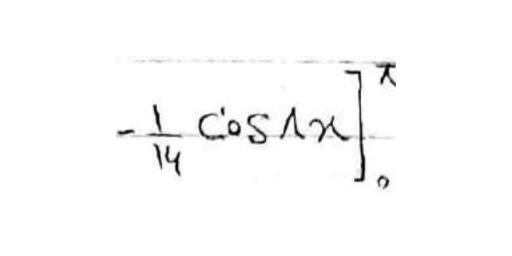 -1/14 cos 1x]₀^π